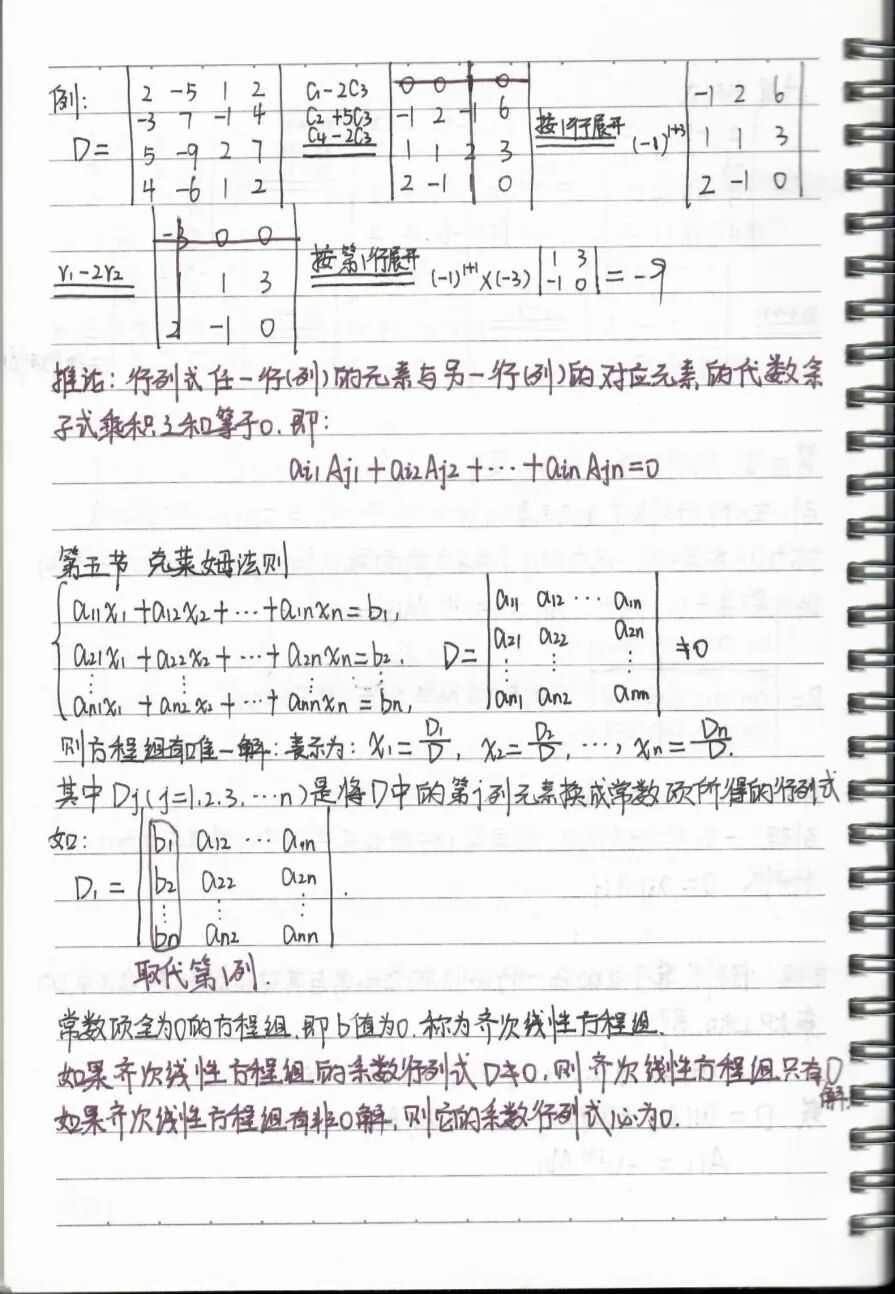 例: D = | 2 -5 1 2 | -3 7 -1 4 | 5 -9 2 7 | 4 -6 1 2 | C₁-2C₃ C₂+5C₃ C₄-2C₃ | 0 0 1 0 | -1 2 -1 6 | 1 1 2 3 | 2 -1 1 0 | 按1行展开 (-1)¹⁺³ | -1 2 6 | 1 1 3 | 2 -1 0 |
r₁-2r₂ | -3 0 0 | 1 1 3 | 2 -1 0 | 按第1行展开 (-1)¹⁺¹×(-3) | 1 3 | -1 0 | = -9
推论: 行列式任一行(列)的元素与另一行(列)的对应元素的代数余
子式乘积之和等于0.即:
ai₁Aj₁+ai₂Aj₂+⋯+ainAjn=0
第五节 克莱姆法则
a₁₁x₁+a₁₂x₂+⋯+a₁nxn=b₁,
a₂₁x₁+a₂₂x₂+⋯+a₂nxn=b₂, D= | a₁₁ a₁₂ ⋯ a₁n | a₂₁ a₂₂ a₂n | ⋮ ⋮ ⋮ | an₁ an₂ ann | ≠0
⋮ ⋮ ⋮ ⋮
an₁x₁+an₂x₂+⋯+annxn=bn,
则方程组有唯一解:表示为: x₁=D₁/D, x₂=D₂/D, ⋯, xn=Dn/D.
其中Dj(j=1,2,3,⋯n)是将D中的第j列元素换成常数项所得的行列式
如:
D₁= | b₁ a₁₂ ⋯ a₁n | b₂ a₂₂ a₂n | ⋮ ⋮ ⋮ | bn an₂ ann | .
取代第1列.
常数项全为0的方程组,即b值为0.称为齐次线性方程组.
如果齐次线性方程组的系数行列式D≠0,则齐次线性方程组只有0解.
如果齐次线性方程组有非0解,则它的系数行列式必为0.